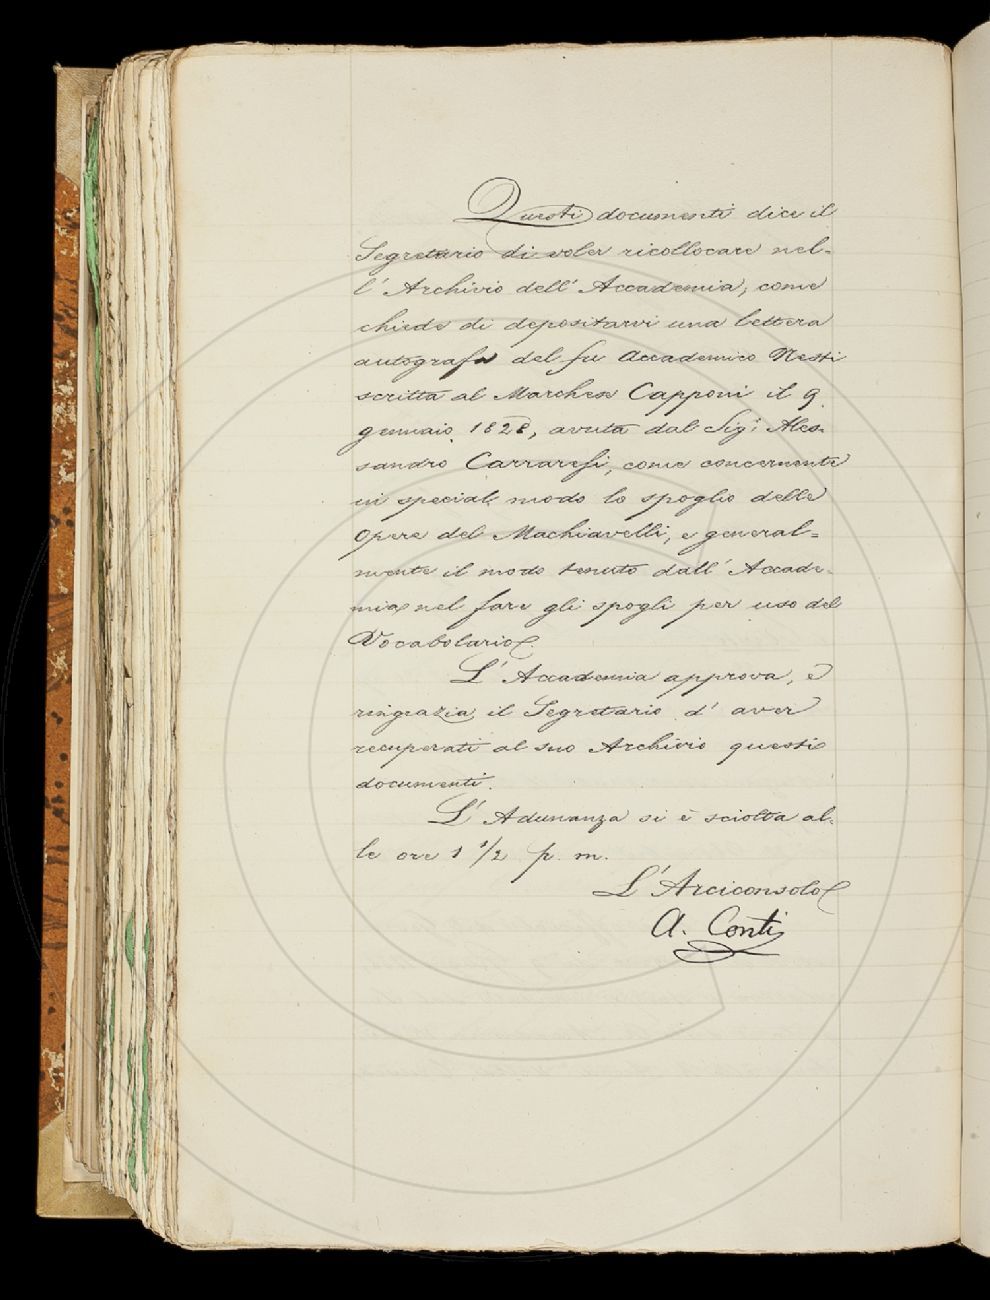 Questi documenti dice il
Segretario di voler ricollocare nel-
l' Archivio dell' Accademia, come
chiede di depositarvi una lettera
autografa del fu Accademico Nesti
scritta al Marchese Capponi il 9
gennaio 1828, avuta dal Sigr Ales-
sandro Carraresi, come concernente
in special modo lo spoglio delle
Opere del Machiavelli, e general-
mente il modo tenuto dall' Accade-
mia nel fare gli spogli per uso del
Vocabolario.
L' Accademia approva, e
ringrazia il Segretario d' aver
recuperati al suo Archivio questi
documenti.
L' Adunanza si è sciolta al-
le ore 1 1/2 p. m.
L' Arciconsolo
A. Conti